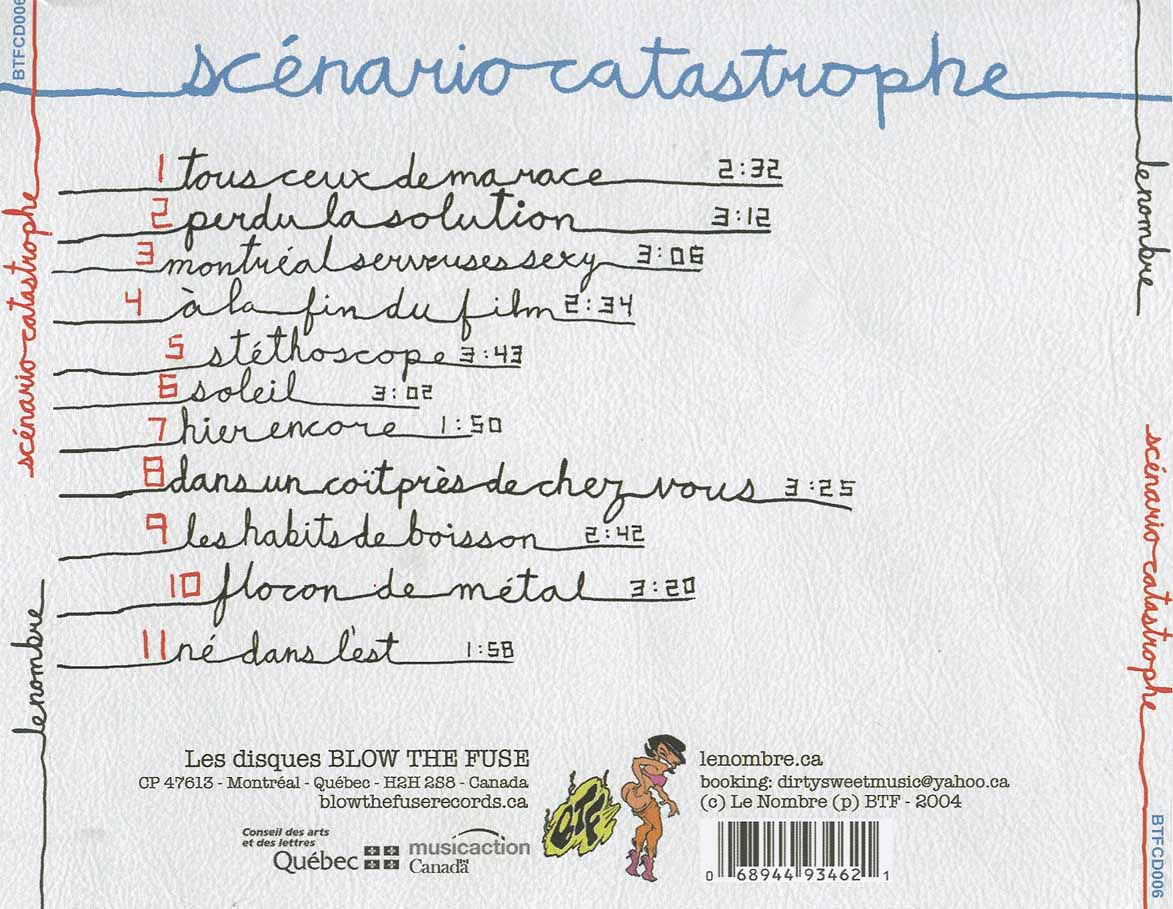 BTFCD006
scénario catastrophe
1 tous ceux de ma race 2:32
2 perdu la solution 3:12
3 montréal serveuses sexy 3:06
4 à la fin du film 2:34
5 stéthoscope 3:43
6 soleil 3:02
7 hier encore 1:50
8 dans un coït près de chez vous 3:25
9 les habits de boisson 2:42
10 flocon de métal 3:20
11 né dans l'est 1:58
scénario catastrophe
lenombre
lenombre
scénario catastrophe
BTFCD006
Les disques BLOW THE FUSE
CP 47613 - Montréal - Québec - H2H 2S8 - Canada
blowthefuserecords.ca
Conseil des arts
et des lettres
Québec
musicaction
Canada
BTF
lenombre.ca
booking: dirtysweetmusic@yahoo.ca
(c) Le Nombre (p) BTF - 2004
0 68944 93462 1